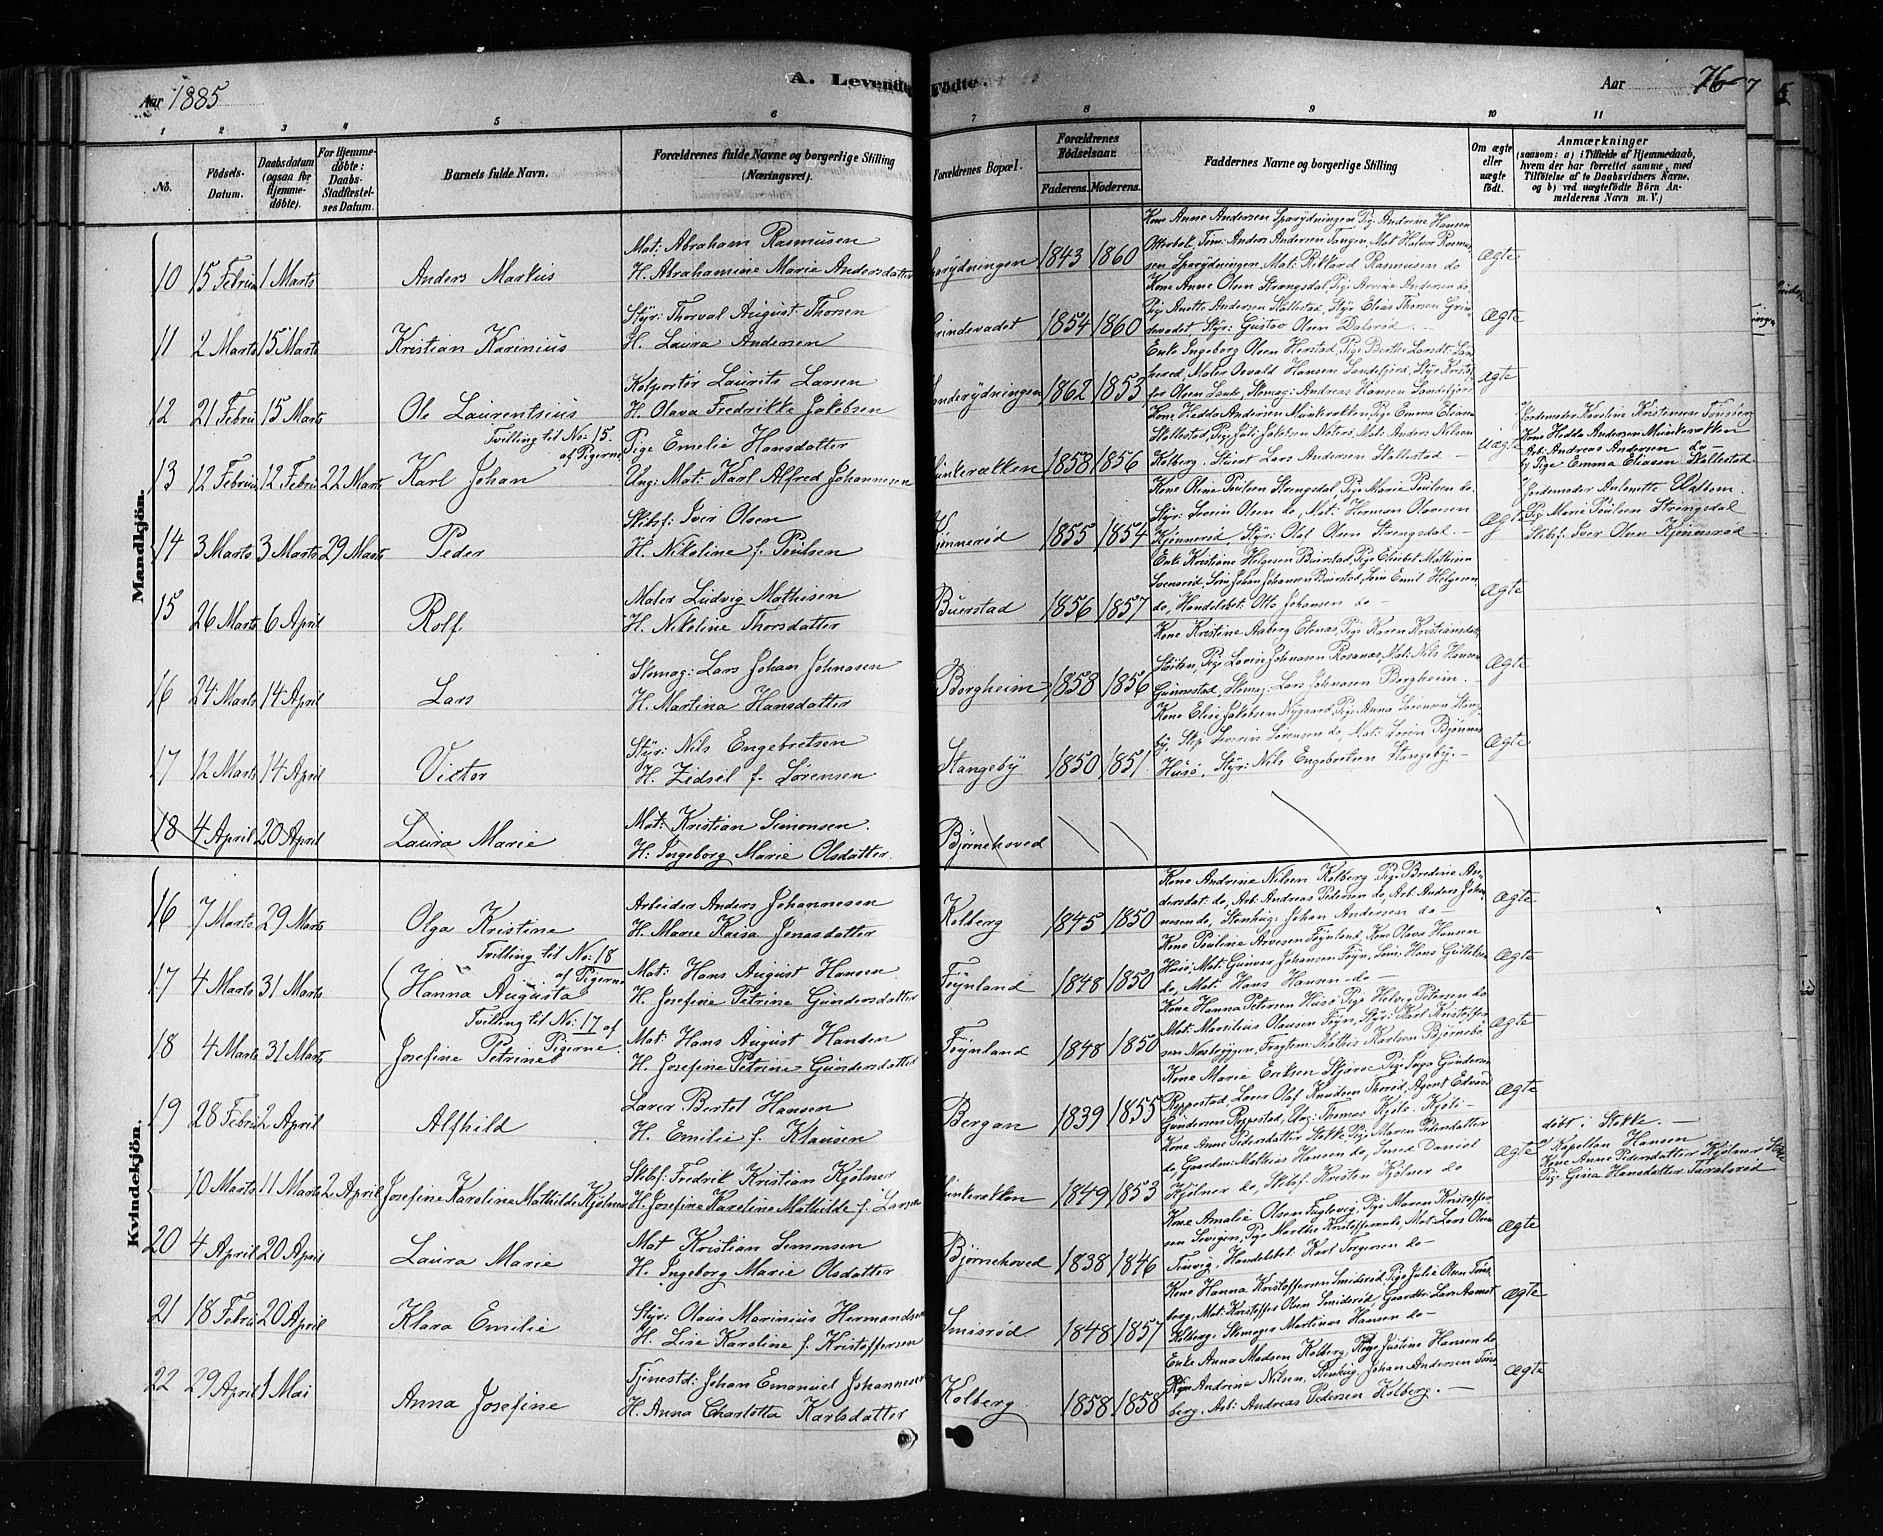 Aar 1885
A. Levende Fødte.
Aar 76
1 2 3 4 5 6 7 8 9 10 11
No.
Fødsels-Datum.
Daabsdatum (ogsaa for Hjemmedöbte).
For Hjemmedöbte: Daabs-Stadfæstelses Datum.
Barnets fulde Navn.
Forældrenes fulde Navne og borgerlige Stilling (Næringsvei).
Forældrenes Bopæl.
Forældrenes Födselsaar.
Faderens. Moderens.
Faddernes Navne og borgerlige Stilling
Om ægte eller uægte födt.
Anmærkninger
(saasom: a) i Tilfælde af Hjemmedaab, hvem der har forrettet samme, med Tilföielse af to Daabsvidners Navne, og b) ved uægtefödte Börn Anmelderens Navn m. V.)
Mandkjön.
10 15 Februar 1 Marts Anders Markus
Mat: Abraham Rasmusen
H. Abrahamine Marie Andersdatter
Sparydningen 1843 1860
Kone Anne Andersen Sparydningen Pige Andrine Hansen
Otterbek, Tøm: Anders Andersen Tangen, Mat Halvor Rasmu-
sen Sparydningen, Mat: Rikkard Rasmusen do
Ægte
11 2 Marts 15 Marts Kristian Karinius
Styr: Thorval August Thorsen
H. Laura Andersen
Grindevadet 1854 1860
Kone Anne Olsen Strengsdal, Pige Arvine Andersen do,
Pige Anette Andersen Skallestad, Styr Elias Thorsen Grin-
devadet Styr: Gustav Olsen Dalerød
Ægte
12 21 Februar 15 Marts Ole Laurentsius
Kolportør Laurits Larsen
H. Olava Fredrikke Jakobsen
Sønderydningen 1862 1853
Enke Ingeborg Olsen Herstad, Pige Berthe Larsdt. San-
hered, Maler Osvald Hansen Sandefjord, Styr Kristof-
fer Olsen Lenke, Skomag: Andreas Hansen Sandefjord
Ægte
13 12 Februar 12 Februar 22 Marts
Tvilling til No: 15. af Pigerne
Karl Johan
Pige Emelie Hansdatter
Ung: Mat: Karl Alfred Johannesen
Munkerækken 1858 1856
Kone Hedda Andersen Munkerækken, Pige Emma Eliasen
Skallestad, Pige Juli Jakobsen Nøterø, Mat: Anders Nilsen
Kolberg. Stuert Lars Andersen Skallestad. —
uægte
Jordemoder Karoline Kristensen Tønsberg
Kone Hedda Andersen Munkerækken
Arb: Andreas Andersen do —
b) Pige Emma Eliasen Skallestad
14 3 Marts 3 Marts 29 Marts Peder
Skibsf: Iver Olsen
H. Nikoline f. Poulsen
Kjønnerød 1855 1854
Kone Oline Poulsen Strengsdal, Pige Marie Poulsen do.
Styr: Severin Olsen do, Mat: Herman Olavesen
Kjønnerød Styr: Olaf Olsen Strengsdal. —
Ægte
Jordemoder Antonette Wattom.
Pig Marie Poulsen Strengsdal
Skibsf: Iver Olsen Kjønnerød —
15 26 Marts 6 April Rolf
Maler Ludvig Mathisen
H. Nikoline Thorsdatter
Buerstad 1856 1857
Enke Kristiane Helgesen Buerstad, Pige Elisabet Mathisen
Svensrød, Tøm Johan Johansen Buerstad, Tøm Emil Helgesen
do, Handelsbet: Otto Johansen do
Ægte
16 24 Marts 14 April Lars
Skomag: Lars Johan Johnasen
H. Martina Hansdatter
Borgheim 1858 1856
Kone Kristine Aaberg Elenas, Pige Karen Kristiansdatt.
Støiten, Pige Lovise Johnasen Rosanes, Mat: Nils Hansen
Gunnestad, Skomag: Lars Johnasen Borgheim. —
Ægte
17 12 Marts 14 April Victor
Styr: Nils Engebretsen
H. Zidsel f. Sørensen
Stangeby 1850 1851
Kone Elise Jakobsen Nygaard, Pige Anna Sørensen, Stange-
by, Skip Severin Sørensen do, Mat: Søren Bjønnes
Husø, Styr: Nils Engebretsen Stangeby. —
Ægte
18 4 April 20 April Laura Marie
Mat: Kristian Simonsen.
H: Ingeborg Marie Olsdatter.
Bjørnehoved
Kvindekjön.
16 7 Marts 29 Marts Olga Kristine
Arbeider Anders Johannesen
H. Marie Kaisa Jonasdatter
Kolberg 1845 1850
Kone Andrine Nilsen Kolberg Pige Bredine An-
dersdat: do, Arb: Andreas Pedersen do, Arb: Anders Johan-
nesen do, Stenhug: Johan Andersen do —
Ægte
17 4 Marts 31 Marts
Tvilling til No: 18 af Pigerne
Hanna Augusta
Mat: Hans August Hansen
H. Josefine Petrine Gundersdatter
Føynland 1848 1850
Kone Pauline Arvesen Føynland, Kone Olava Hansen
Husø, Mat: Gunvar Johansen Føyn, Tøm: Hans Gulliksen
do, Mat: Hans Hansen do —
Ægte
18 4 Marts 31 Marts
Tvilling til No: 17 af Pigerne.
Josefine Petrine
Mat: Hans August Handen
H. Josefine Petrine Gundersdatter
Føynland 1848 1850
Kone Hanna Petersen Husø Pige Helvig Petersen do
Mat: Marilius Olausen Føyn, Styr: Karl Kristoffer-
sen Nesleyggen, Fragtem: Mathis Karlsen Bjørnebo
Ægte
19 28 Februar 2 April Alfhild
Lærer Bertel Hansen
H. Emilie f. Klausen
Bergan 1839 1855
Kone Marie Eriksen Skjærøe Pige Inga Gundersen
Reppestad, Lærer Olaf Knudsen Thorød, Agent Edvard
Gundersen Reppestad, Ung: Thomas Kjølø. Kjøli —
Ægte
10 Marts 11 Marts 2 April Josefine Karoline Mathilde Kjølner
Skibsf: Fredrik Kristian Kjølner
H. Josefine Karoline Mathilde f. Larsen
Munkerækken 1849 1853
Kone Anne Pedersdatter Stokke, Pige Maren Pedersdatter
do, Gaardm: Mathias Hansen do, Smed Daniel
Kjølner do, Skibsf. Kristen Kjølner do
Ægte
døbt i Stokke. —
af Kapellan Hansen
Kone Anne Pedersdatter Kjølner Stokke
Pige Gina Hansdatter Tasalsrød
20 4 April 20 April Laura Marie
Mat Kristian Simonsen
H. Ingeborg Marie Olsdatter
Bjørnehoved 1838 1846
Kone Amalie Olsen Fuglevig, Pige Maren Kristoffer-
sen Sevigen, Pige Marthe Kristoffersen do, Mat: Lars Olsen
Tenvig, Handelsbet: Karl Torgersen do —
Ægte
21 18 Februar 20 April Klara Emilie
Styr: Olaus Marinius Hermandsen
H. Lise Karoline f. Kristoffersen
Smisrød 1848 1857
Kone Hanna Kristoffersen Smiderød, Pige Julie Olsen Tøns-
berg, Mat: Kristoffer Olsen Smiderød Gaardbr: Lars Aamot
Kolberg, Skomager Martinus Hansen do —
Ægte
22 29 April 1 Mai Anna Josefine
Tjenestd: Johan Emanuel Johannesen
H. Anna Charlotta Karlsdatter
Kolberg 1858 1858
Enke Anna Madsen Kolberg, Pige Justine Hansen do
Kone Andrine Nilsen, Stenhug: Johan Andersen Tøns-
berg, Arb: Andreas Pedersen Kolberg. —
Ægte